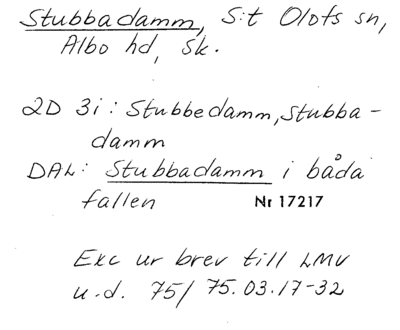 Stubbadamm, S:t Olofs sn,
Albo hd, Sk.
2D 3i: Stubbedamm, Stubba-
damm
DAL: Stubbadamm i båda
fallen Nr 17217
Exc ur brev till LMV
u.d. 75/75.03.17-32